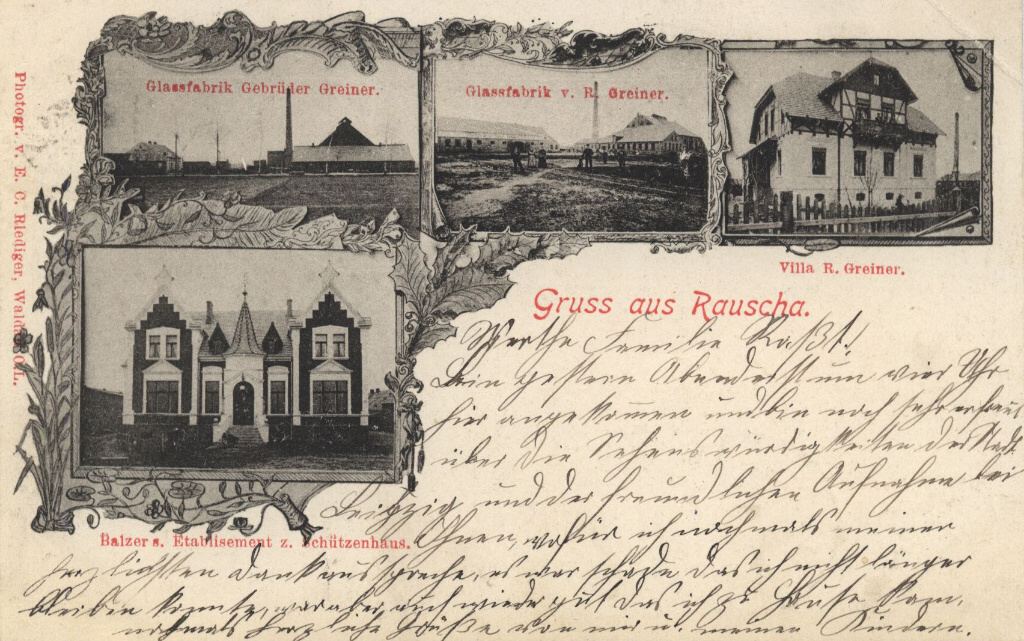 Glassfabrik Gebrüder Greiner.
Glassfabrik v. R. Greiner.
Villa R. Greiner.
Photogr. v. E. C. Riediger, Waldau O/L.
Gruss aus Rauscha.
Balzer s. Etablisement z. Schützenhaus.
Werthe Familie
bin gestern Abend erst um vier Uhr
hier angekommen und bin noch sehr erfreut
über die Sehenswürdigkeiten der Stadt
Leipzig und der freundlichen Aufnahme bei
Ihnen, wofür ich nochmals meinen
herzlichsten Dank ausspreche, es war schade das ich nicht länger
bleiben konnte, war aber auch wieder gut das ich zu Hause kam.
nochmals herzliche Grüße von mir u. meinen Kindern.